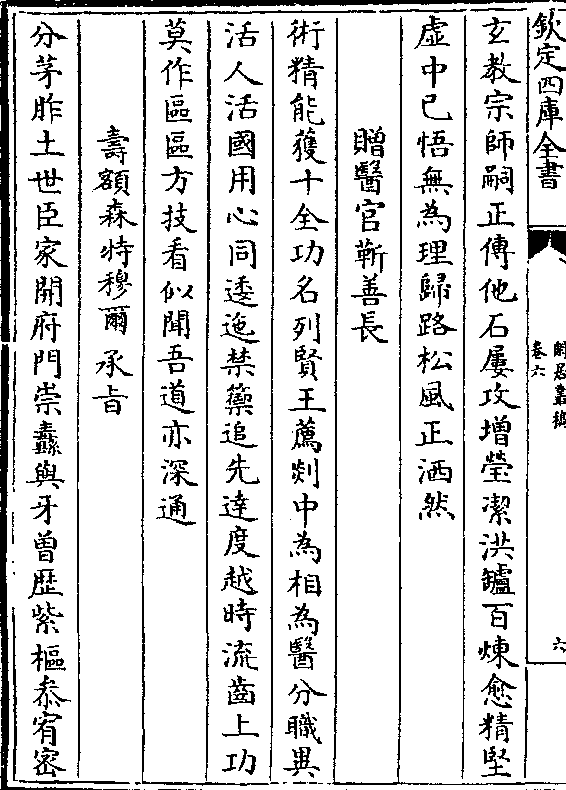 欽定四庫全書
閒居叢稿
卷六
六
玄教宗師嗣正傳他石屢攻增瑩潔洪鑪百煉愈精堅
虛中已悟無為理歸路松風正洒然
贈醫官靳善長
術精能獲十全功名列賢王薦剡中為相為醫分職異
活人活國用心同逶迤禁籞追先達度越時流齒上功
莫作區區方技看似聞吾道亦深通
壽額森特穆爾承旨
分茅胙土世臣家開府門崇纛與牙曽歴紫樞叅宥密